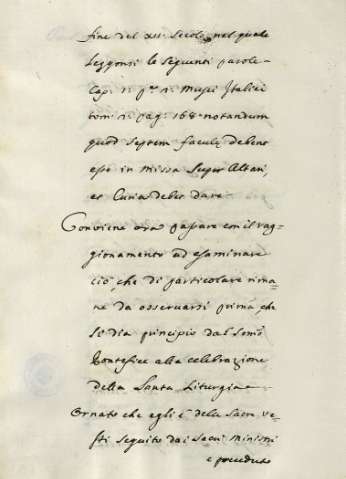 fine del XII. Secolo, nel quale
Leggonsi le seguenti parole
Cap. n. p.º n. Musei Italici
tom. 2. pag. 168. notandum
quod septem faculę debent
esse in Missa Super Altari,
et Curia debet dare
Conviene ora passare con il rag=
gionamento ad esaminare
ciò, che di particolare rima=
ne da osservarsi prima, che
Si dia principio dal Somº
Pontefice alla celebrazione
della Santa Liturgia
Ornato che egli è dele Sacre ve=
sti seguito dai Sacri Ministri
e preceduto